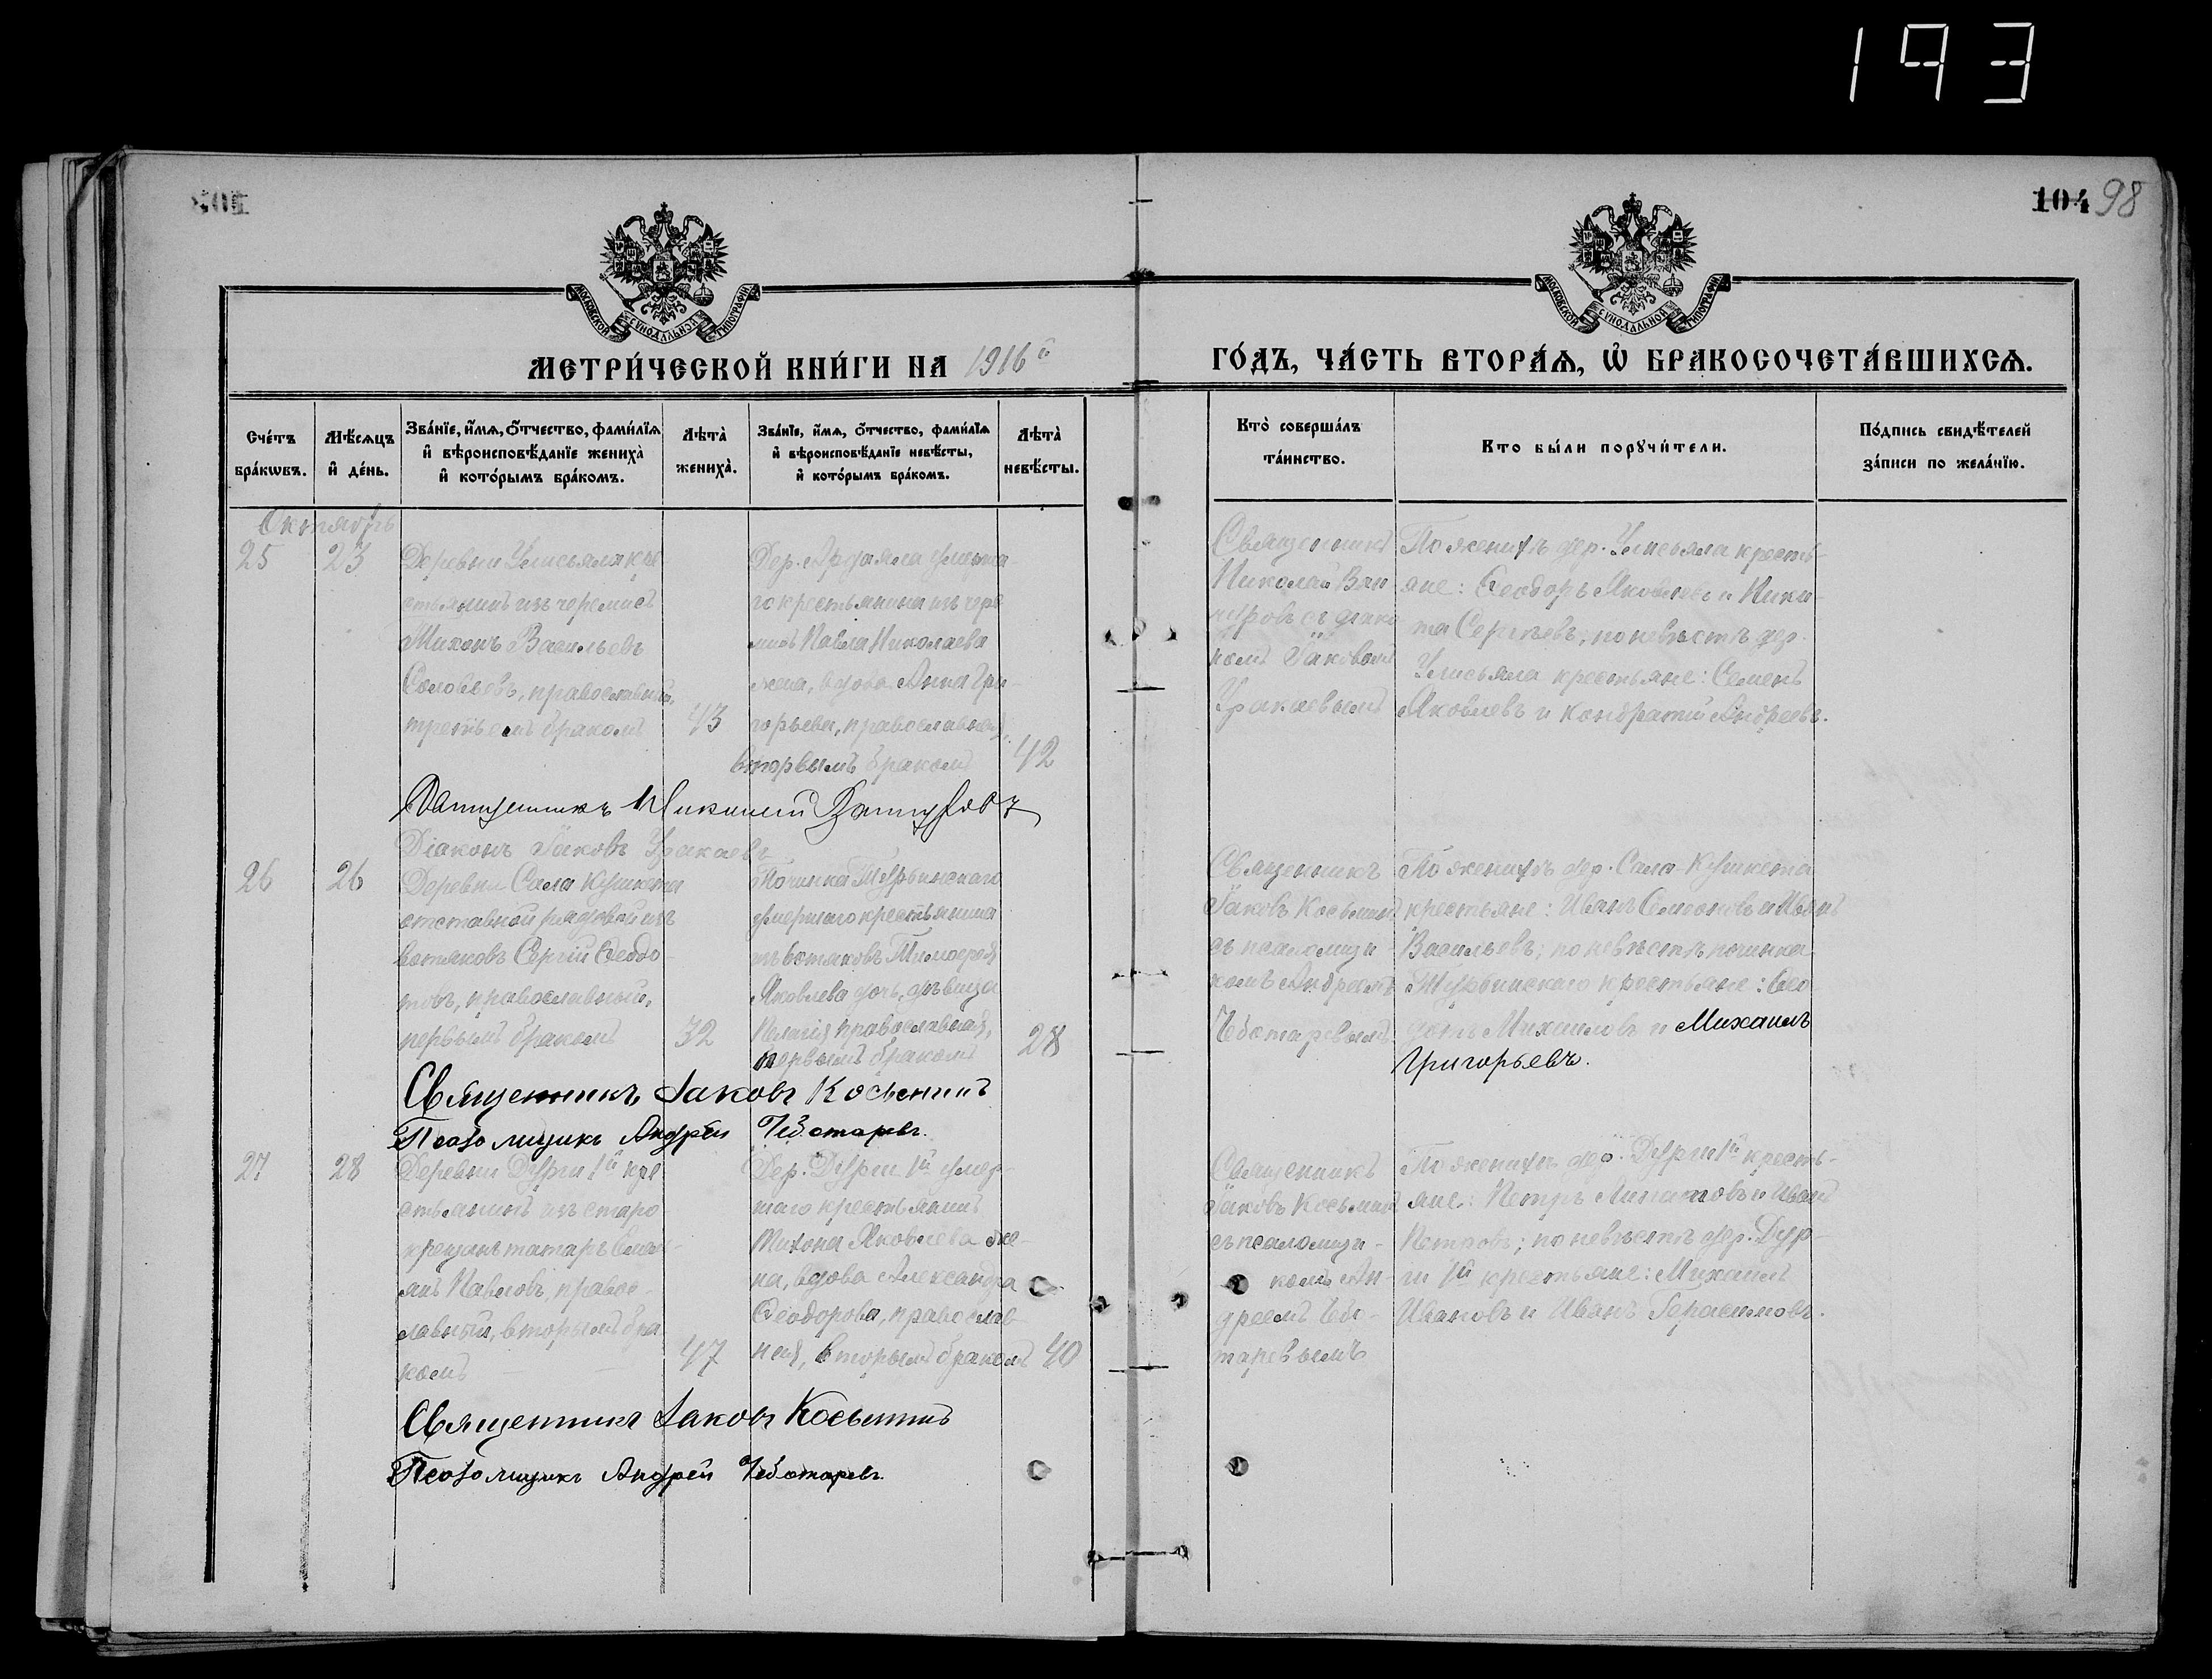 193
104 98
МОСКОВСКОЙ СѴНОДАЛЬНОЙ ТИПОГРАФІИ
МОСКОВСКОЙ СѴНОДАЛЬНОЙ ТИПОГРАФІИ
МЕТРИ́ЧЕСКОЙ КНИ́ГИ НА 1916й
ГО́ДЪ, ЧА́СТЬ ВТОРА́Ѧ, Ѡ҆ БРАКОСОЧЕТА́ВШИХСѦ.
Сче́тъ бра́кωвъ.
Мѣ́сяцъ и҆ де́нь.
Зва́нїе, и҆́мѧ, ѻ҆́тчество, фами́лїѧ и҆ вѣроисповѣ́данїе жениха̀ и҆ кото́рымъ бра́комъ.
Лѣта̀ жениха̀.
Зва́нїе, и҆́мѧ, ѻ҆́тчество, фами́лїѧ и҆ вѣроисповѣ́данїе невѣ́сты, и҆ кото́рымъ бра́комъ.
Лѣта̀ невѣ́сты.
Кто̀ соверша́лъ та́инство.
Кто бы́ли порꙋчи́тели.
По́дпись свидѣ́телей за́писи по жела́нїю.
Октябрь
25
23
Деревни Улисьяла кре
стьянинъ изъ черемисъ
Тихонъ Васильевъ
Соловьевъ, православный,
третьемъ бракомъ
43
Дер. умерша
го крестьянина изъ чере
мисъ Павла Николаева
жена, вдова Анна Гри-
горьева, православная,
вторымъ бракомъ
42
Священникъ
Николай
съ діако
номъ Іаковомъ
Уракаевымъ
По женихѣ дер. Улисьяла кресть-
яне: Ѳеодоръ Яковлевъ и Ники-
та Сергѣевъ; по невѣстѣ дер.
Улисьяла крестьяне: Семенъ
Яковлевъ и Кондратій Андреевъ.
Священникъ Николай
Діаконъ Іаковъ Уракаевъ
26
26
Деревни Сала Кушкета
отставной рядовой изъ
вотяковъ Сергій Ѳедо
товъ, православный,
первымъ бракомъ
32
Починка
умершаго крестьянина
изъ вотяковъ Тимоѳея
Яковлева дочь, дѣвица
Пелагія православная,
первымъ бракомъ
28
Священникъ
Іаковъ Косьминъ
съ псаломщи-
комъ Андреемъ
Чеботаревымъ
По женихѣ дер. Сала-Кушкета
крестьяне: Иванъ Семеоновъ и Иванъ
Васильевъ; по невѣстѣ починка
крестьяне: Ѳео-
дотъ Михаиловъ и Михаилъ
Григорьевъ.
Священникъ Іаковъ Косьминъ
Псаломщикъ Андрей Чеботаревъ.
27
28
Деревни Дурги 1й кре
стьянинъ изъ старо
крещенъ татаръ
Павловъ, правос-
лавный, вторымъ бра
комъ
47
Дер. Дурги 1й умер-
шаго крестьянина
Тихона Яковлева же-
на, вдова Александра
Ѳеодорова, православ
ная, вторымъ бракомъ
40
Священникъ
Іаковъ Косьминъ
съ псаломщи-
комъ Ан-
дреемъ Чебо-
таревымъ
По женихѣ дер. Дурги 1й кресть-
яне: Петръ и Иванъ
Петровъ; по невѣстѣ дер. Дур-
ги 1й крестьяне: Михаилъ
Ивановъ и Иванъ Герасимовъ.
Священникъ Іаковъ Косьминъ
Псаломщикъ Андрей Чеботаревъ.